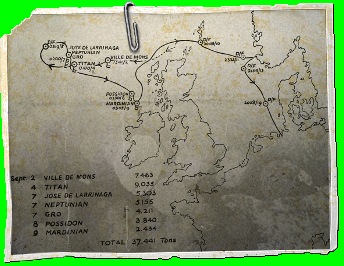 JOSE DE LARRINAGA
NEPTUNIAN
GRO
TITAN
VILLE DE MONS
POSSIDON
MARDINIAN
Sept. 2 VILLE DE MONS 7.463
4 TITAN 9.035
7 JOSE DE LARRINAGA 5.303
7 NEPTUNIAN 5.155
7 GRO 4.211
8 POSSIDON 3.840
9 MARDINIAN 2.434
TOTAL 37.441 Tons